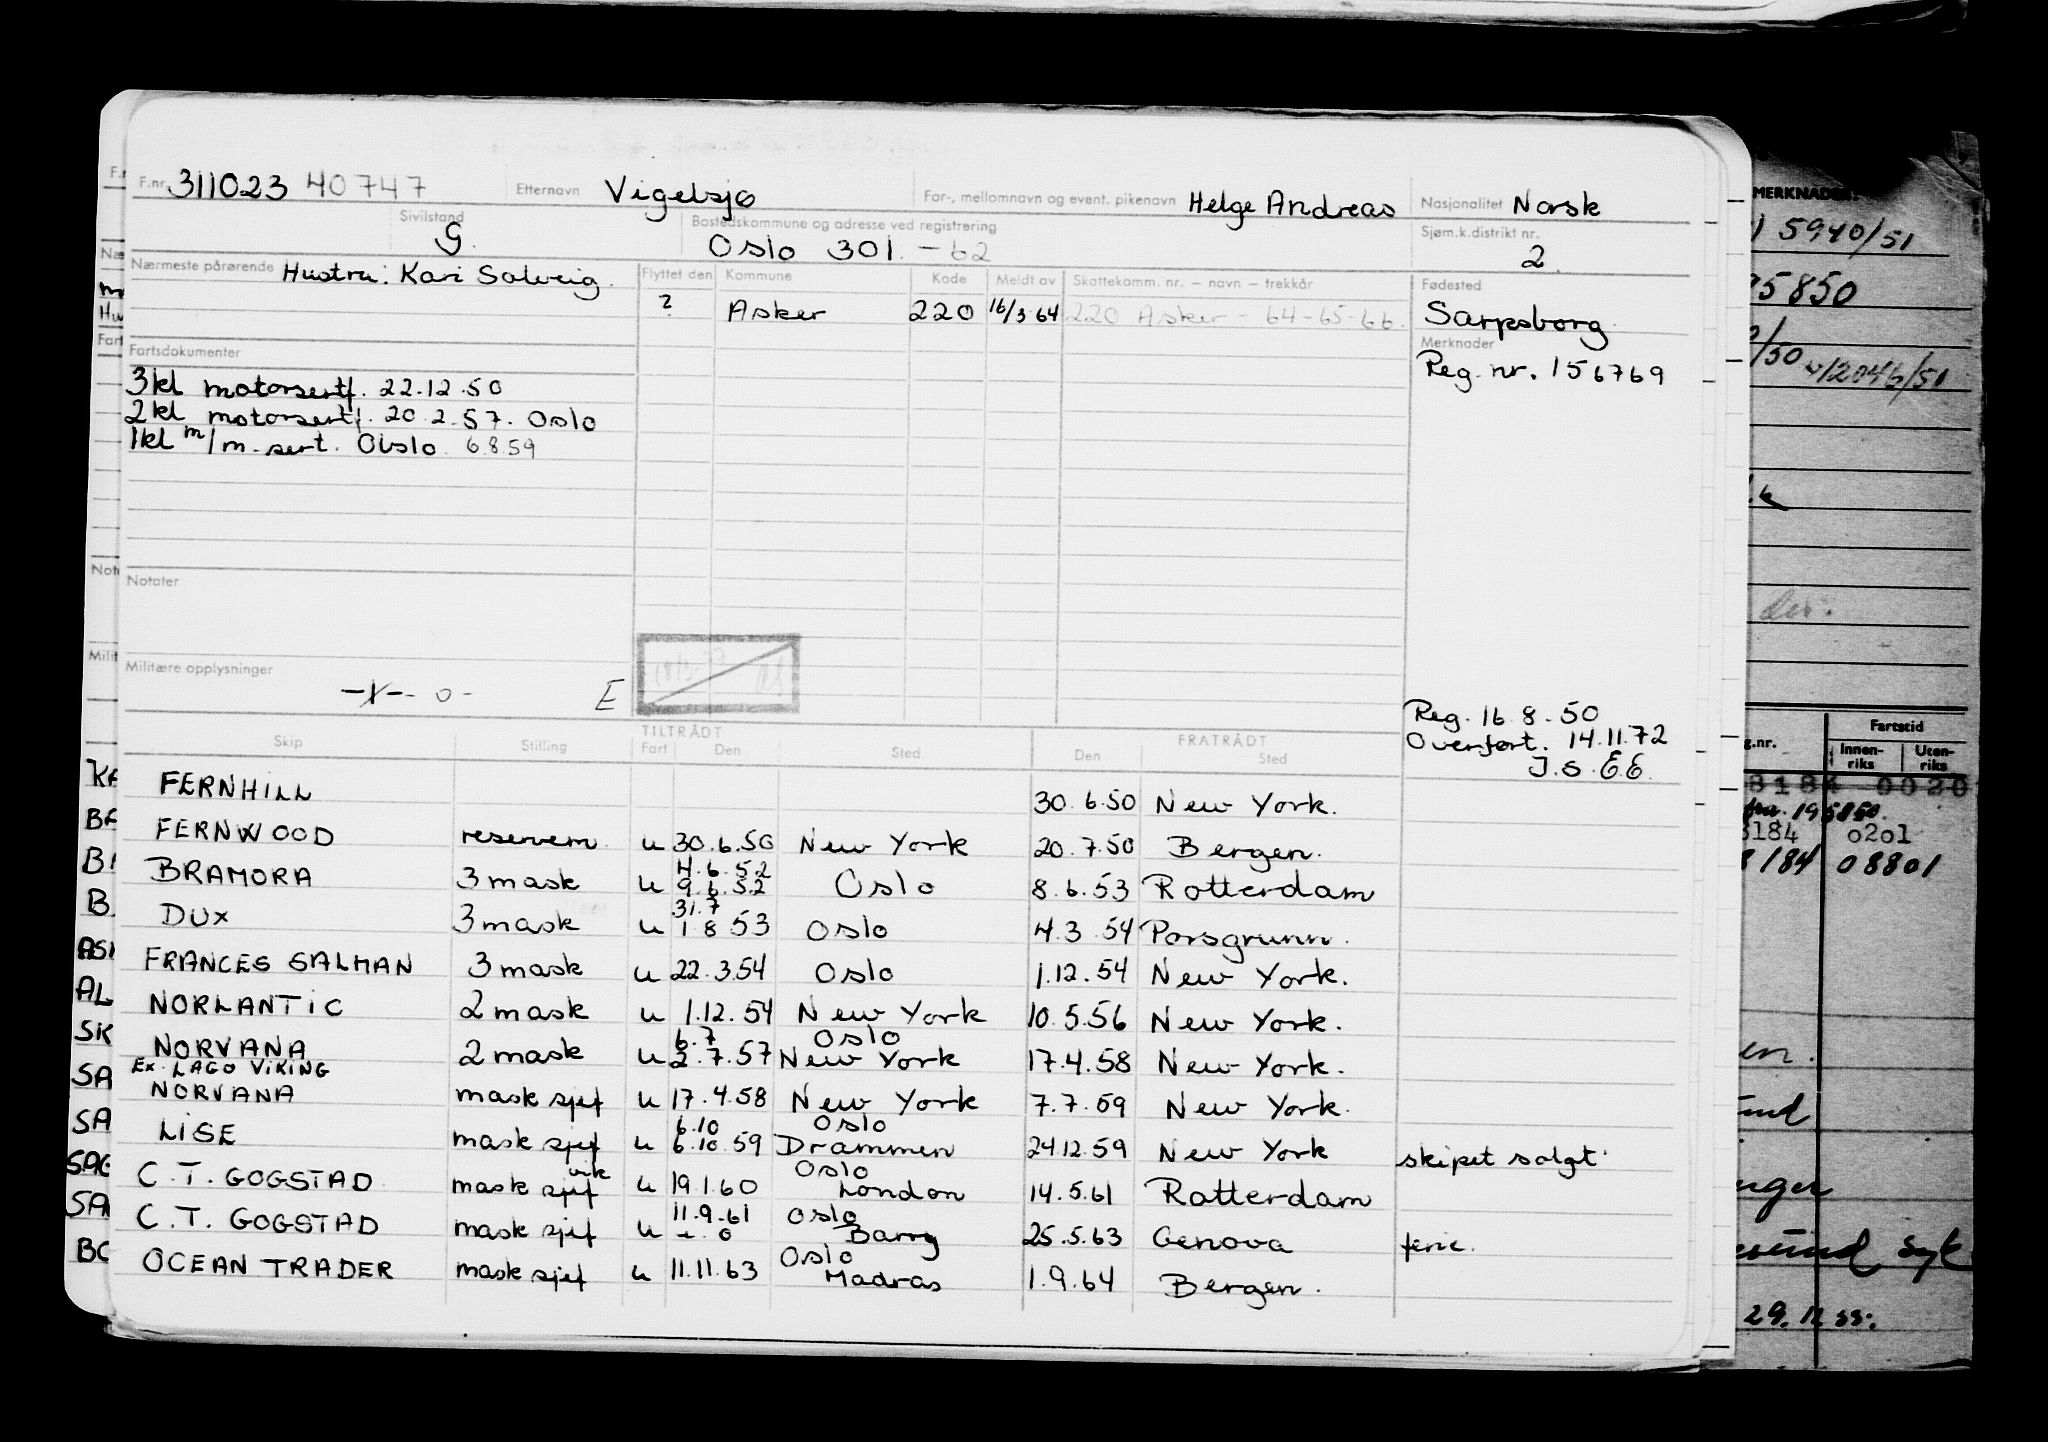 F.nr. 311023 40747 Etternavn Vigelsjø For-, mellomnavn og event. pikenavn Helge Andreas Nasjonalitet Norsk
Sivilstand G. Bostedskommune og adresse ved registrering Oslo 301. - 62 Sjøm.k.distrikt nr. 2.
Nærmeste pårørende Hustru: Kari Solveig. Flyttet den Kommune Kode Meldt av Skattekomm. nr. – navn – trekkår Fødested
? Asker 220 16/3 64 220 Asker - 64-65-66. Sarpsborg.
Fartsdokumenter
Merknader
Reg. nr. 156769
3kl motorsertf. 22.12.50
2kl motorsertf. 20.2.57. Oslo
1kl m/m-sert. Oslo 6.8.59
Notater
Militære opplysninger
- o - E
Reg. 16.8.50
Overført. 14.11.72
J.S. E.E.
TILTRÅDT FRATRÅDT
Skip Stilling Fart Den Sted Den Sted
FERNHILL 30.6.50 New York.
FERNWOOD reservem. u 30.6.50 New York 20.7.50 Bergen.
4.6.52
BRAMORA 3 mask u 9.6.52 Oslo 8.6.53 Rotterdam
31.7
DUX 3 mask u 1 8 53 Oslo 4.3.54 Porsgrunn.
FRANCES SALMAN 3 mask u 22.3.54 Oslo 1.12.54 New York.
NORLANTIC 2 mask u 1.12.54 New York 10.5.56 New York.
6.7 Oslo
NORVANA 2 mask u 2.7.57 New York 17.4.58 New York.
Ex. LAGO VIKING
NORVANA mask sjef u 17.4.58 New York 7.7.59 New York.
6.10 Oslo
LISE mask sjef u 6.10.59 Drammen 24.12.59 New York skipet solgt
vik Oslo
C.T. GOGSTAD mask sjef u 19.1.60 London 14.5.61 Rotterdam
11.9.61 Oslo
C.T. GOGSTAD mask sjef u Barry 25.5.63 Genova ferie.
Oslo
OCEAN TRADER mask sjef u 11.11.63 Madras 1.9.64 Bergen.
MERKNADER
5940/51
5850
/50 12046/51
Fartstid
g.nr. Innen-riks Uten-riks
0020
8184 0201
8184 08801
Syk
29.11.55.